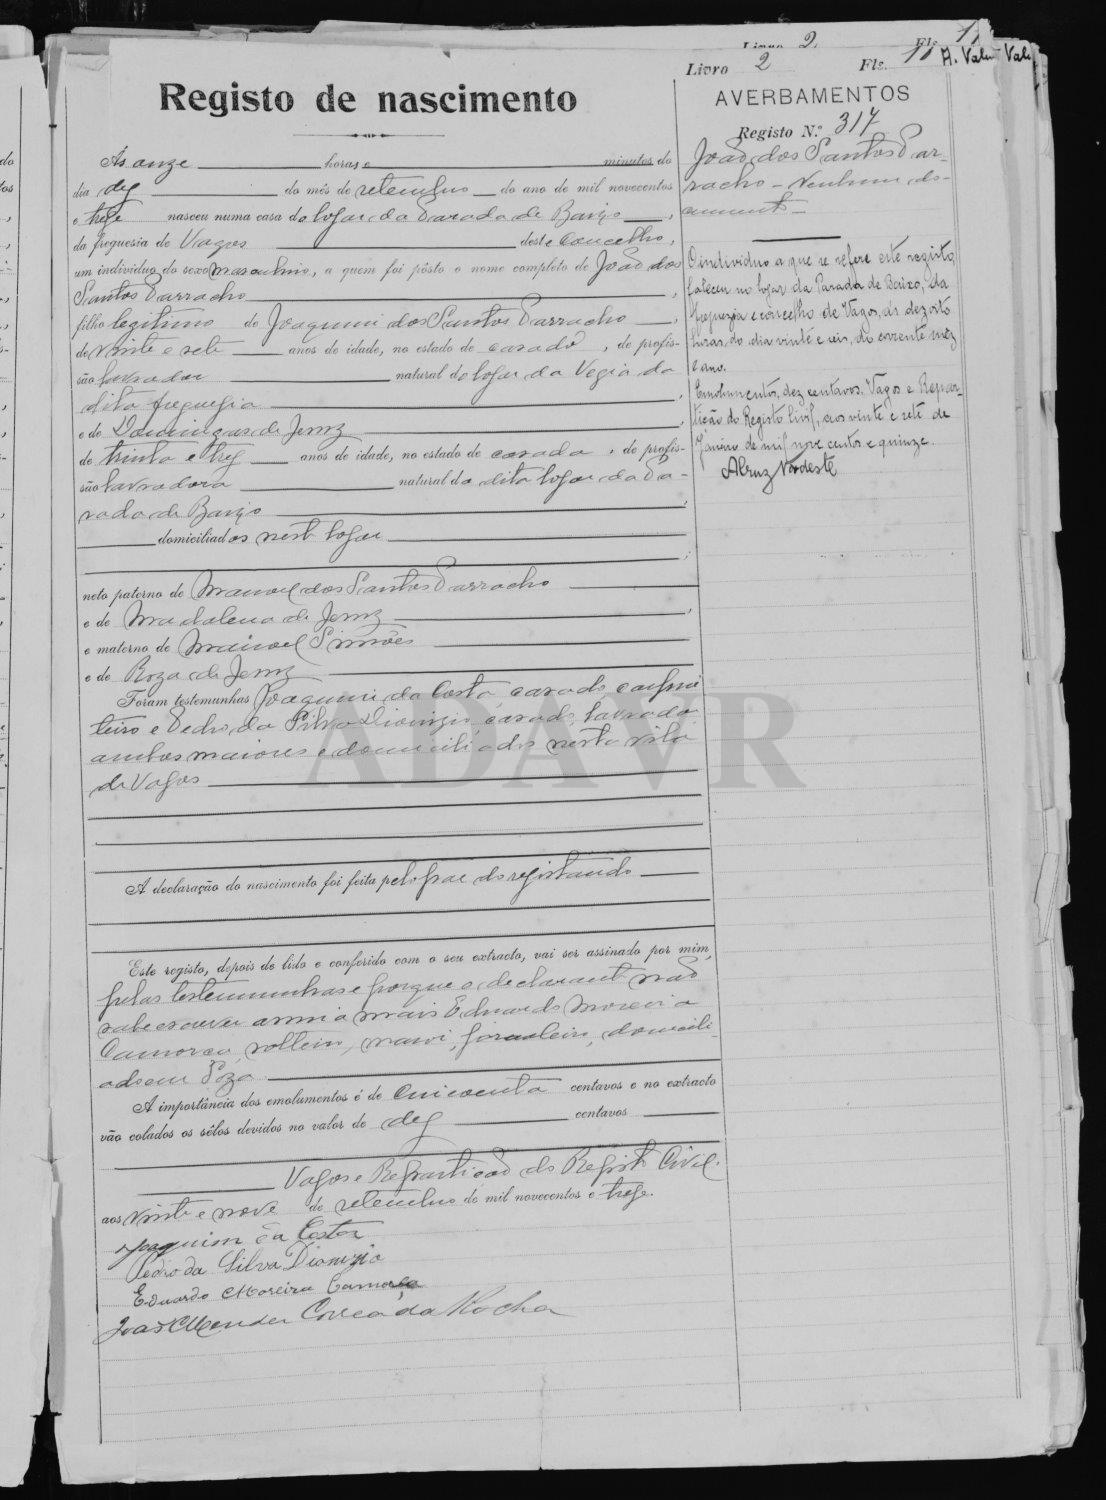 Livro 2 Fls. 11
Livro 2 Fls. 11
Registo de nascimento
Ás onze horas e minutos do
dia dez do mês de setembro do ano de mil novecentos
e treze nasceu numa casa do logar da Parada de Baixo,
da freguesia de Vagos deste concelho,
um individuo do sexo masculino, a quem foi pôsto o nome completo de João dos
Santos Parracho,
filho legitimo de Joaquim dos Santos Parracho,
de vinte e sete anos de idade, no estado de casado, de profis-
são lavrador natural do logar da Vegia da
dita freguezia,
e de Domingas de Jemz,
de trinta e trez anos de idade, no estado de casada, de profis-
são lavradora natural do dito logar da Pa-
rada de Baixo,
domiciliados neste logar
;
neto paterno de Manoel dos Santos Parracho
e de Madalena de Jemz,
e materno de Manoel Simões
e de Roza de Jemz
Foram testemunhas Joaquim da Costa, casado, carpin
teiro e Pedro da Silva Dionizio, casado, lavrador
ambos maiores e domiciliados nesta vila
de Vagos
A declaração do nascimento foi feita pelo pae do registando
Este registo, depois de lido e conferido com o seu extracto, vai ser assinado por mim,
pelas testemunhas e porque o declarante não
sabe escrever assina mais Eduardo Moreira
Camorea, solteiro, maior, jornaleiro, domicili-
ado em Soza
A importância dos emolumentos é de cincoenta centavos e no extracto
vão colados os sêlos devidos no valor de dez centavos
Vagos e Repartição do Registo Civil.
aos vinte e nove de setembro de mil novecentos e treze.
Joaquim da Costa
Pedro da Silva Dionizio
Eduardo Moreira Camorea
João Mendes Correa da Rocha
A. Valu Vale
AVERBAMENTOS
Registo N.º 317
João dos Santos Par-
racho - Nenhum do-
cumento -
O individuo a que se refere este registo,
faleceu no logar da Parada de Baixo, da
freguezia e concelho de Vagos, ás dezoito
horas, do dia vinte e seis, do corrente mez
e ano.
Emolumentos, dez centavos. Vagos e Repar-
tição do Registo Civil, aos vinte e sete de
Janeiro de mil nove centos e quinze.
ADAVR